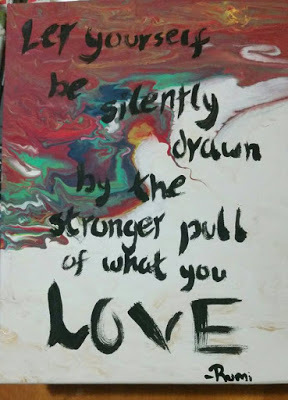 Let yourself
be silently
drawn
by the
stronger pull
of what you
LOVE
-Rumi